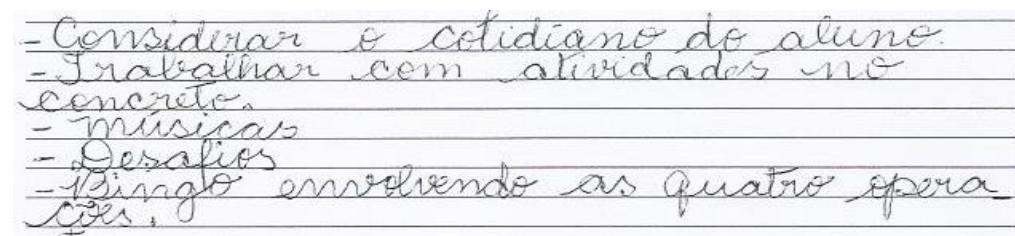 - Considerar o cotidiano do aluno.
- Trabalhar com atividades no
concreto.
- músicas
- Desafios
- Bingo envolvendo as quatro opera_
ções.